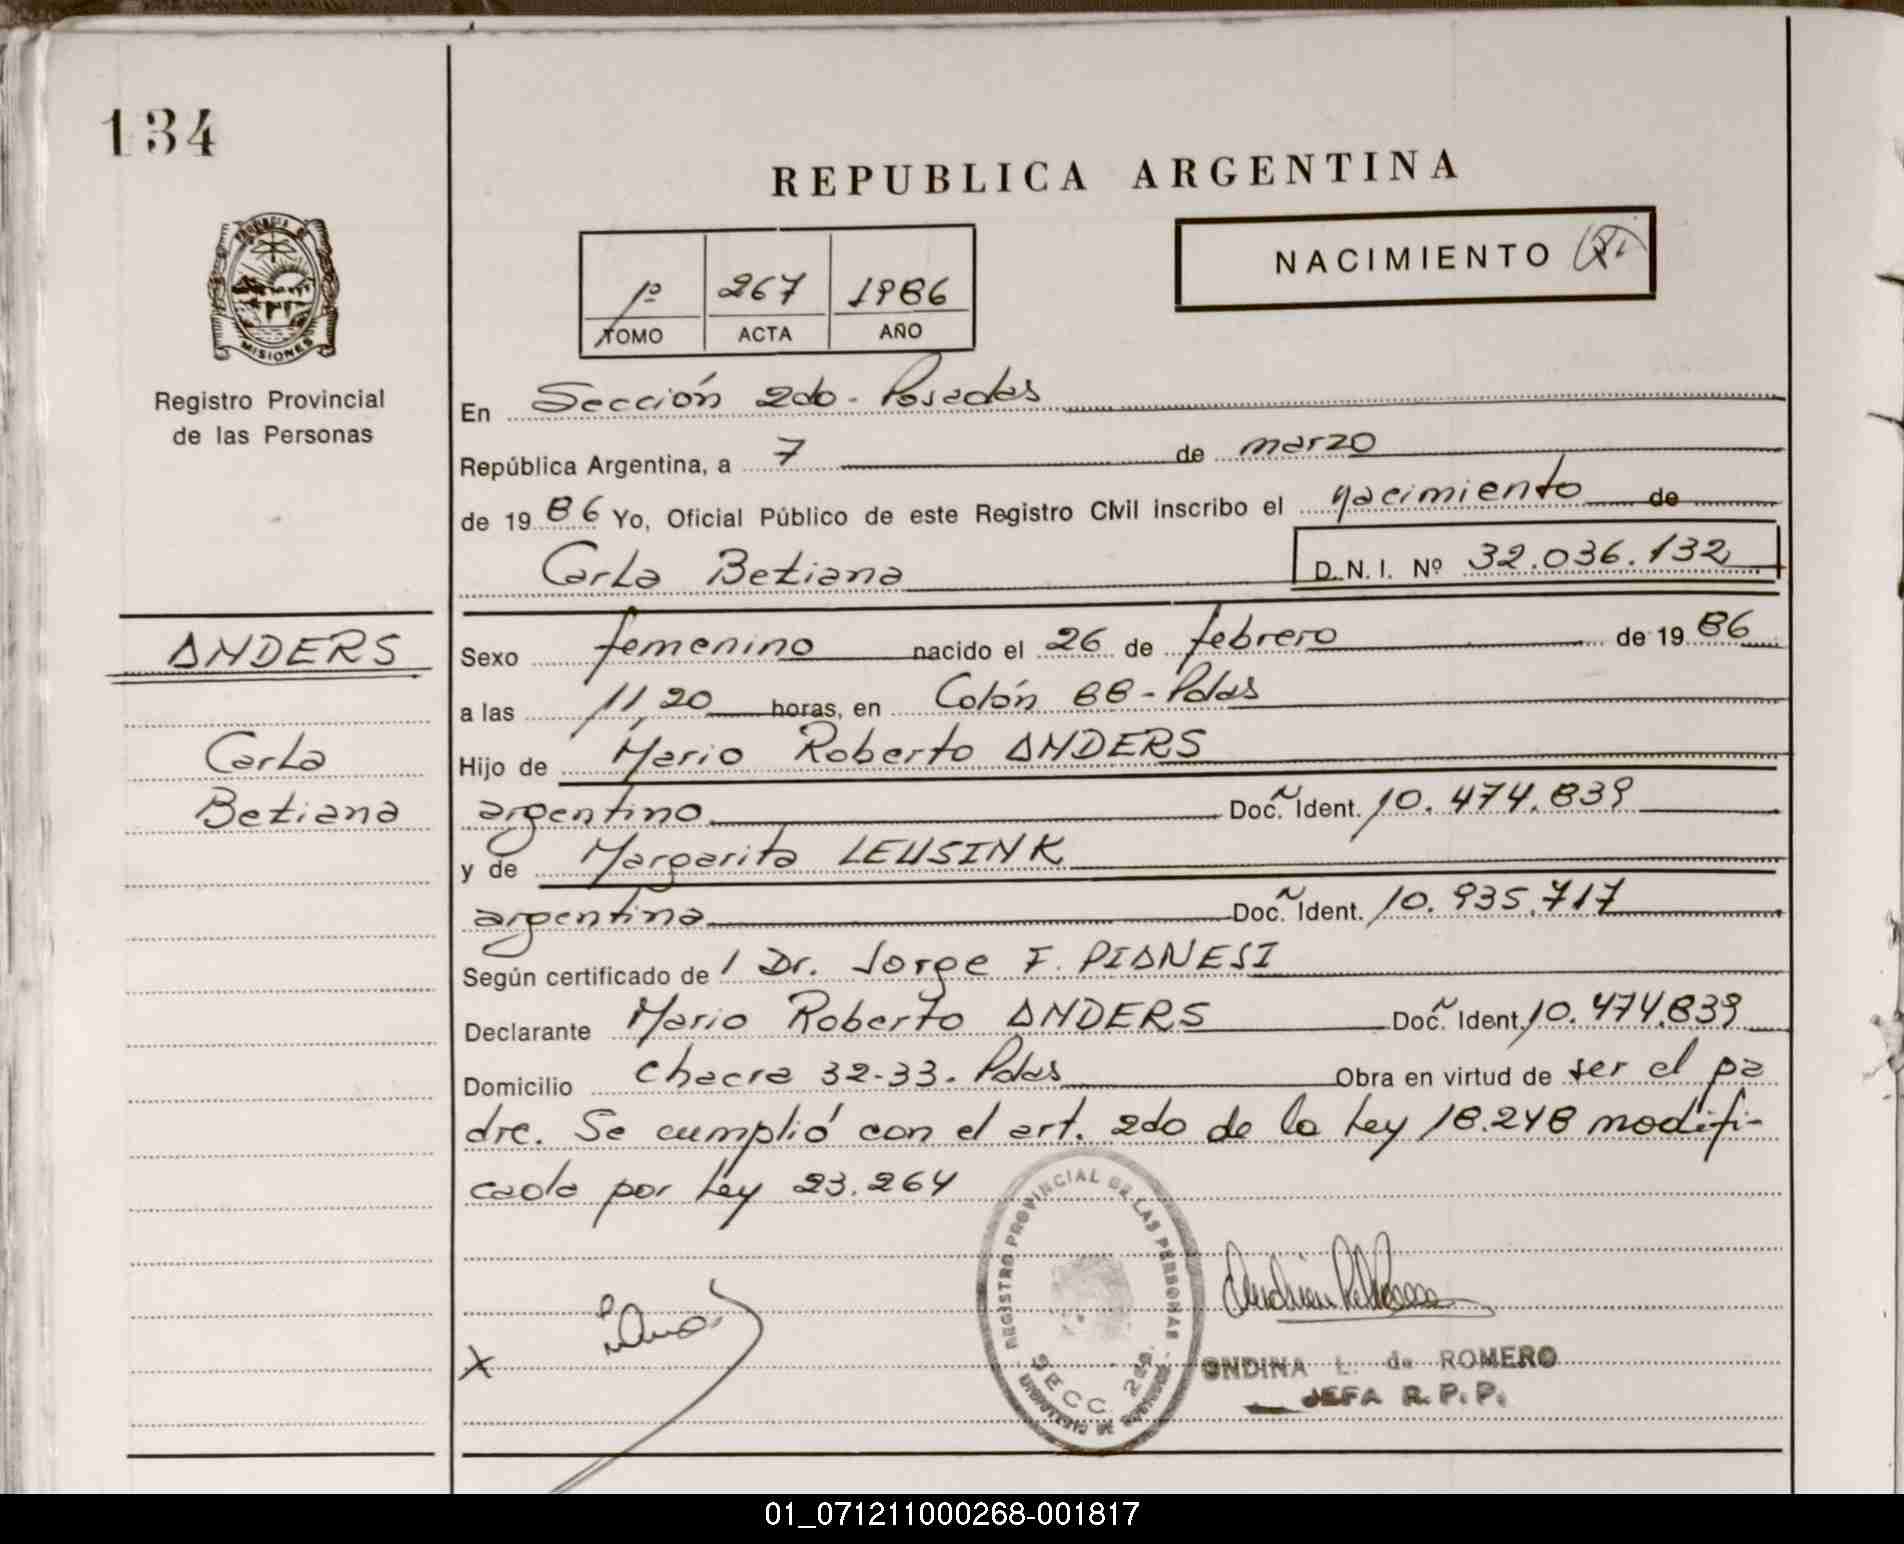 134
REPUBLICA ARGENTINA
PROVINCIA DE MISIONES
Registro Provincial
de las Personas
1º 267 1986
TOMO ACTA AÑO
NACIMIENTO
En Sección 2do - Posadas
República Argentina, a 7 de marzo
de 1986 Yo, Oficial Público de este Registro Civil inscribo el nacimiento de
Carla Betiana D.N.I. Nº 32.036.132
ANDERS
Carla
Betiana
Sexo femenino nacido el 26 de febrero de 1986
a las 11,20 horas, en Colón 88 - Pdas
Hijo de Mario Roberto ANDERS
argentino Doc. Ident. 10.474.839
y de Margarita LEUSINK
argentina Doc. Ident. 10.935.717
Según certificado de 1 Dr. Jorge F. PIANESI
Declarante Mario Roberto ANDERS Doc. Ident. 10.474.839
Domicilio chacra 32-33. Pdas Obra en virtud de ser el pa
dre. Se cumplió con el art. 2do de la Ley 18.248 modifi-
cada por Ley 23.264
REGISTRO PROVINCIAL DE LAS PERSONAS
SECC 2da.
X
ONDINA L. de ROMERO
JEFA R.P.P.
01_071211000268-001817